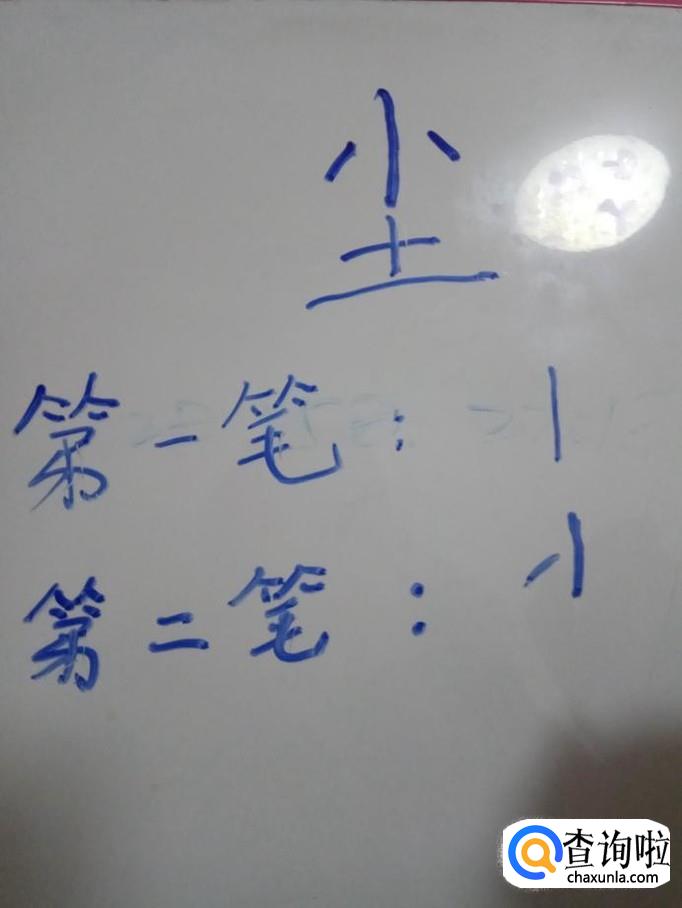 尘
第一笔：丨
第二笔：小
查询啦
chaxunla.com